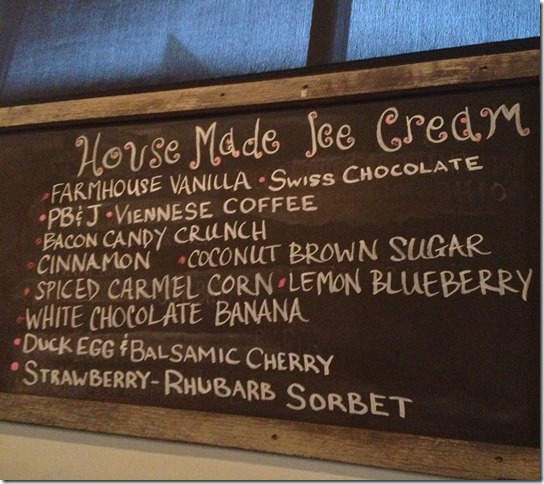 House Made Ice Cream
• FARMHOUSE VANILLA • SWISS CHOCOLATE
• PB&J • VIENNESE COFFEE
• BACON CANDY CRUNCH
• CINNAMON • COCONUT BROWN SUGAR
• SPICED CARMEL CORN • LEMON BLUEBERRY
• WHITE CHOCOLATE BANANA
• DUCK EGG & BALSAMIC CHERRY
• STRAWBERRY - RHUBARB SORBET